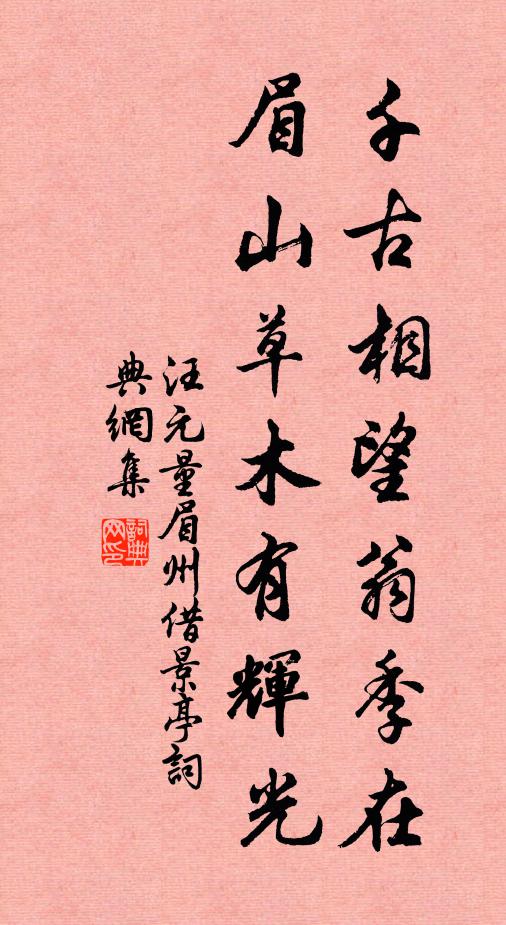 千古相望翁季在
眉山草木有輝光
汪元量眉州借景亭詞
典網集
詞典网印